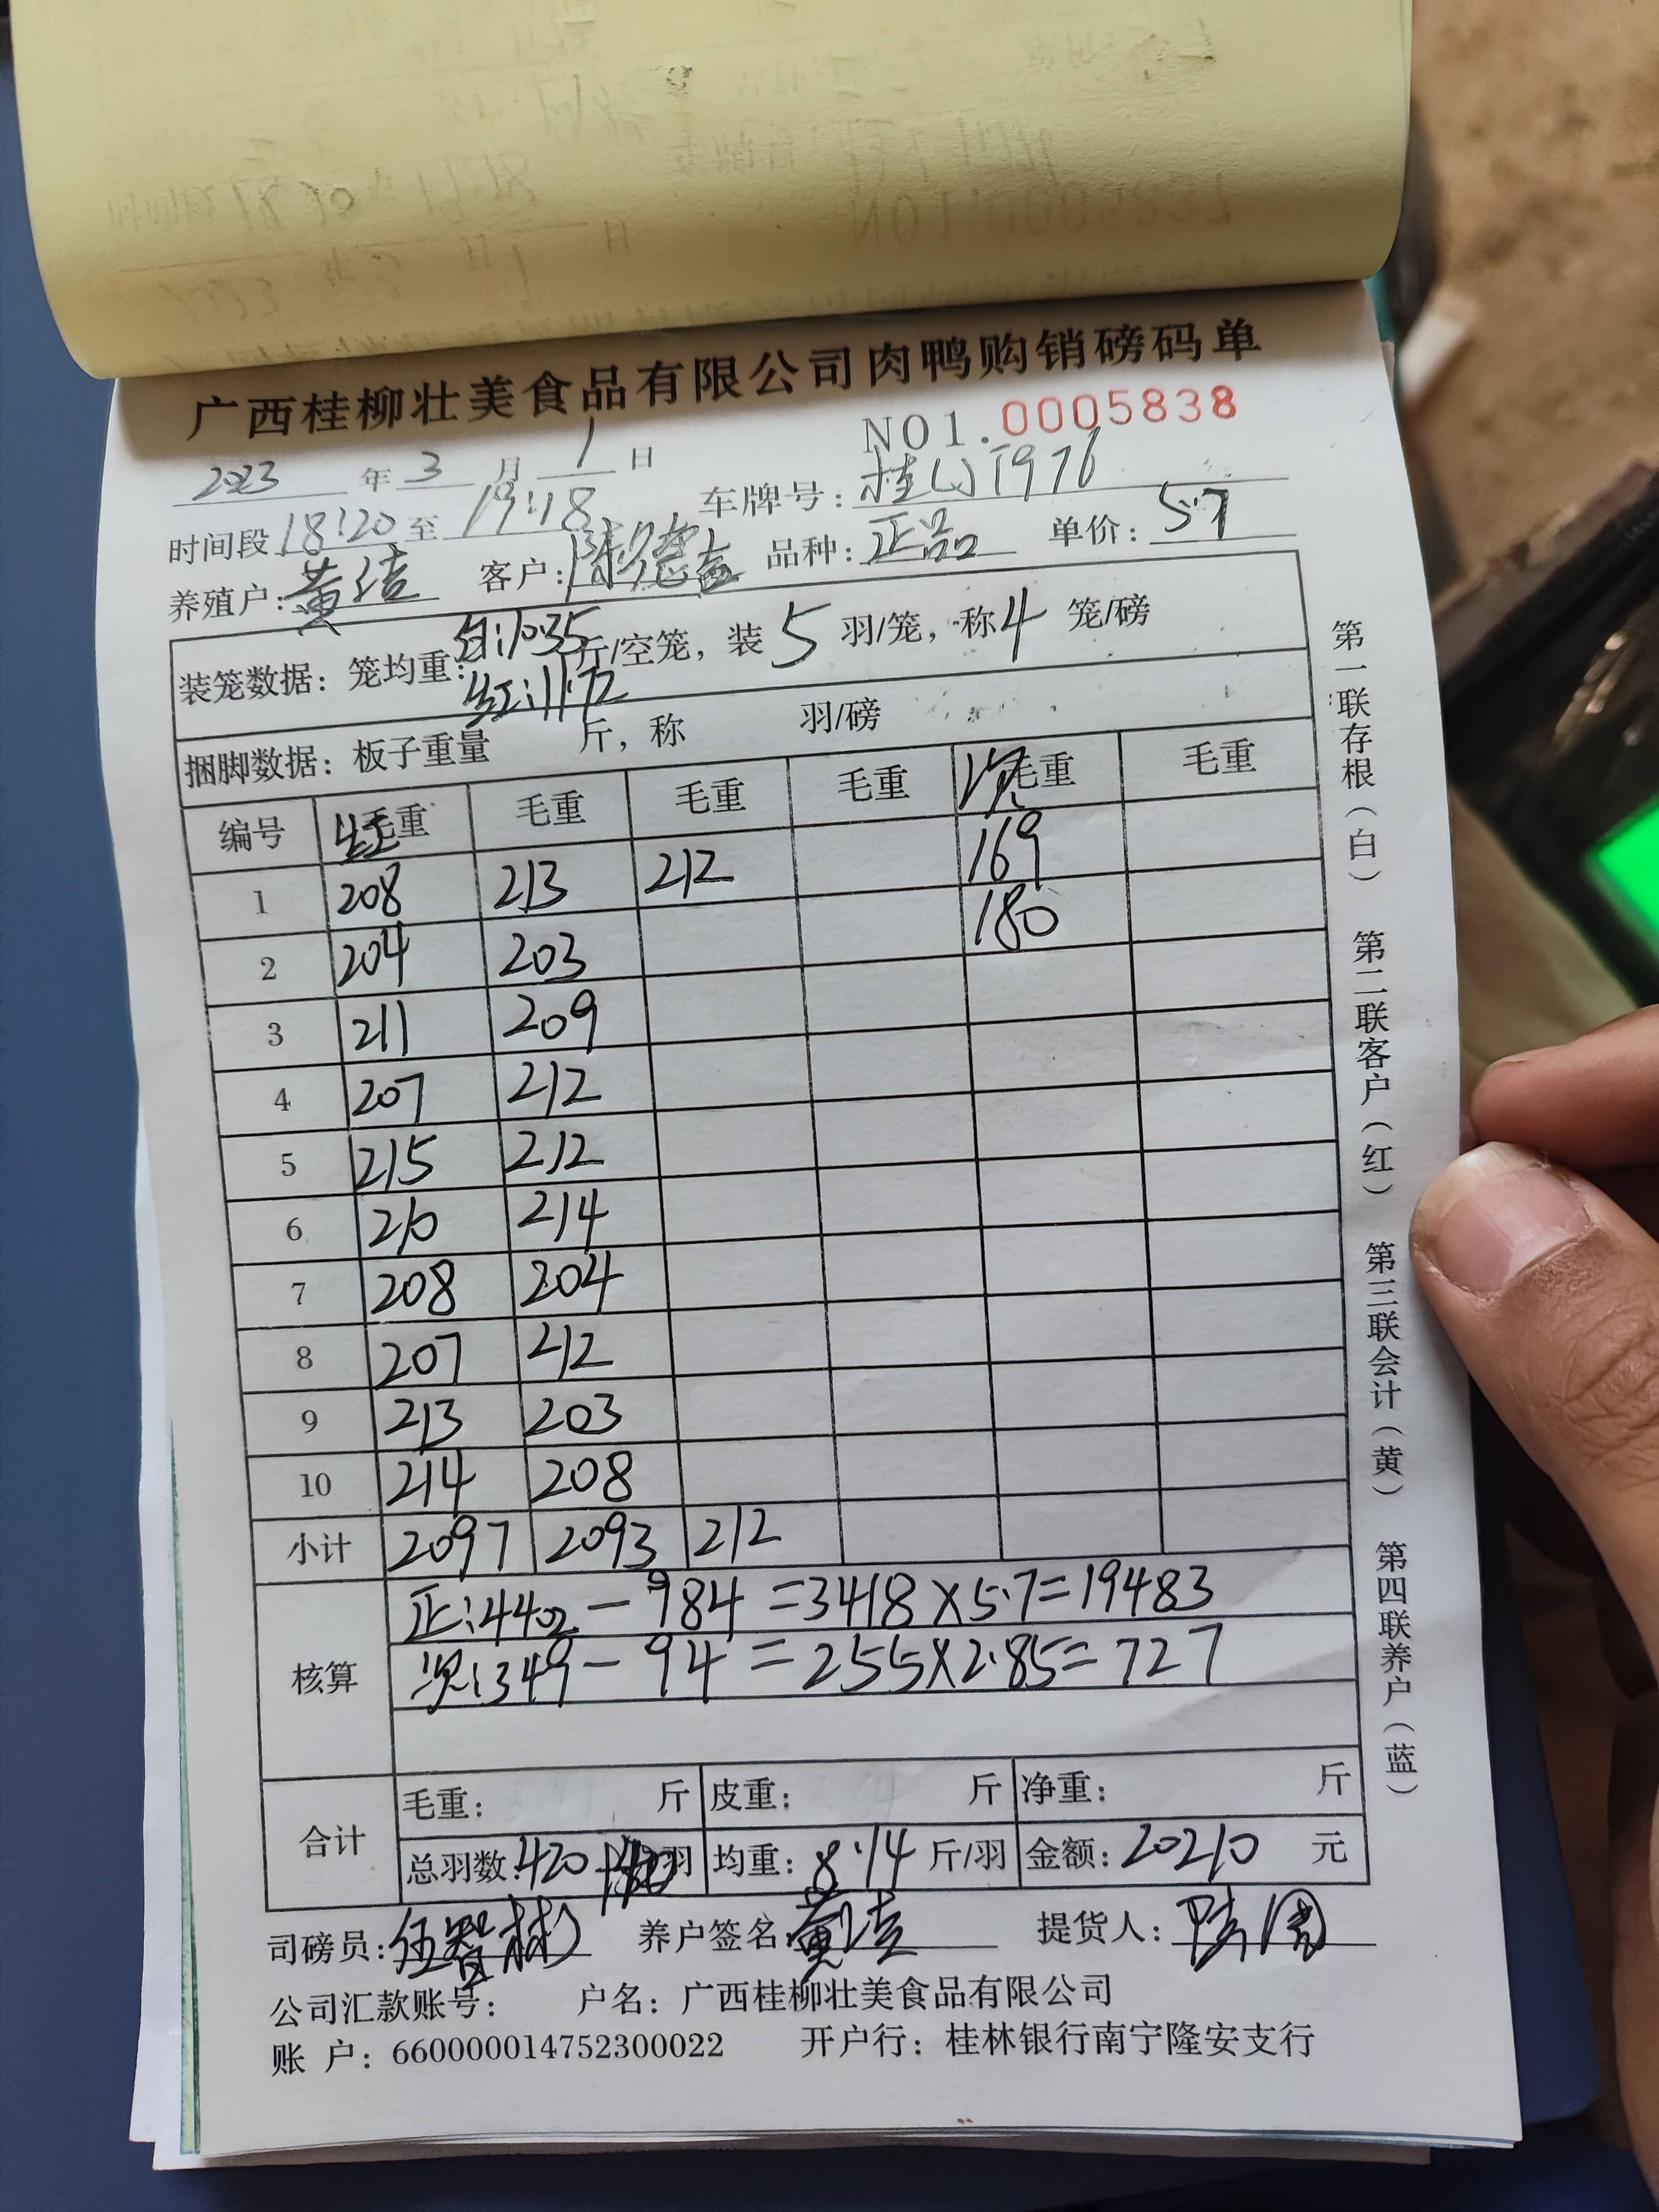 广西桂柳壮美食品有限公司肉鸭购销磅码单
NO1.0005838
2023年3月1日
时间段18:20至19:18 车牌号:
养殖户: 客户: 品种:正品 单价:5.7
装笼数据:笼均重:白:10.35 红:11.72斤/空笼,装5羽/笼,称4笼/磅
捆脚数据:板子重量 斤,称 羽/磅
编号 红毛重 毛重 毛重 毛重 次毛重 毛重
1 208 213 212 169
2 204 203 180
3 211 209
4 207 212
5 215 212
6 210 214
7 208 204
8 207 212
9 213 203
10 214 208
小计 2097 2093 212
核算 正:4402-984=3418×5.7=19483
次:349-94=255×2.85=727
合计 毛重: 斤 皮重: 斤 净重: 斤
总羽数:420 羽 均重:8.14斤/羽 金额:20210元
司磅员:伍智彬 养户签名: 提货人:
公司汇款账号: 户名:广西桂柳壮美食品有限公司
账 户:660000014752300022 开户行:桂林银行南宁隆安支行
第一联存根(白) 第二联客户(红) 第三联会计(黄) 第四联养户(蓝)